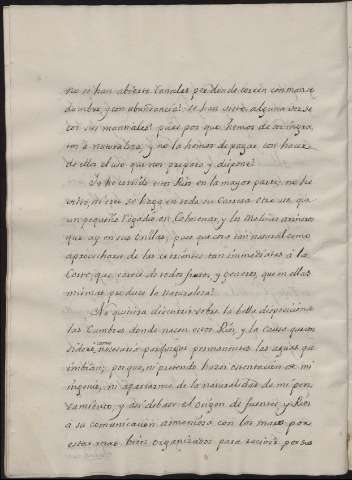 no se han abierto Canales por donde corran con manse
dumbre, y con abundancia? se han visto alguna vez se
cos sus manantiales? pues por que hemos de ser ingra
tos à naturaleza, y no la hemos de pagar con hacer
de ellos el uso que nos prepara y dispone?
Yo he corrido este Rio, en la mayor parte, no he
visto, ni creo se haga en toda su Carrera otro uso que
un pequeño regadio en Colmenar, y los Molinos arineros
que ay en sus Orillas, pues que cosa tan natural como
aprovecharse de las cercanias tan inmediatas à la
Corte, que carece de todos frutos, y generos, que en ellas
mismas produce la Naturaleza?
No quisiera discurrir sobre la bella disposicion de
las Cumbres donde nacen estos Rios, y la Causa que
como necesario para permanentes las aguas que
embian; por que, ni pretendo hacer ostentacion de mi
ingenio, ni apartarme de la naturalidad de mi pen
samiento, y asi debaxe el origen de fuentes, y Rios
à su comunicacion armoniosa con los mares, por
estar mas bien organizados para recivir por su